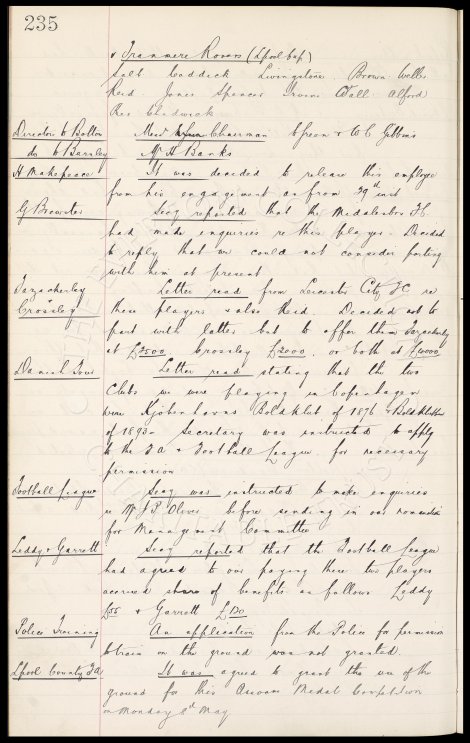 235
v Tranmere Rovers (Lpool Cup)
Salt Caddick Livingstone Brown Weller
Reid Jones Spencer Irvine Wall Alford
Res Chadwick
Director to Bolton Messrs Chairman Green & W C Gibbins
do to Barnsley Mr H Banks
H Makepeace It was decided to release this employee
from his engagement as from 29th inst
G Brewster Secy reported that the Middlesbro FC
had made enquiries re this player. Decided
to reply that we could not consider parting
with him at present
Fazackerley Letter read from Leicester City FC re
& Crossley these players & also Reid. Decided not to
part with latter but to offer them Fazackerley
at £2500, Crossley £2000, or both at £4000
Danish Tour Letter read stating that the two
Clubs we were playing in Copenhagen
were Kjobenhavns Boldklub of 1876 & Boldklubben
of 1893. Secretary was instructed to apply
to the FA & Football League for necessary
permission
Football League Secy was instructed to make enquiries
re Mr J P Oliver before sending in our nomination
for Management Committee
Leddy & Garrott Secy reported that the Football League
had agreed to our paying these two players
accrued share of benefits as follows Leddy
& Garrott
Police Training An application from the Police for permission
to train on the ground was not granted.
Lpool County FA It was agreed to grant the use of the
ground for this Assocn Medal Competition
on Monday May